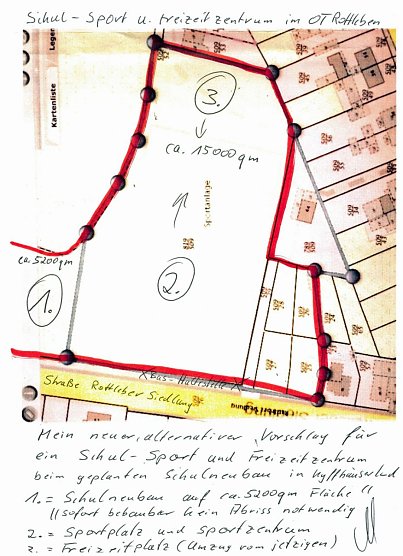 Schul-Sport u. Freizeitzentrum im OT Rottleben
Kartenliste
Legen
3.
ca. 15000 qm
Sportanlage
ca. 5200 qm
1.
2.
X Bus-Haltestelle X
Straße Rottleber Siedlung
Mein neuer, alternativer Vorschlag für
ein Schul-Sport und Freizeitzentrum
beim geplanten Schulneubau in Kyffhäuserland
1. = Schulneubau auf ca. 5200 qm Fläche "
"sofort bebaubar kein Abriss notwendig
2. = Sportplatz und Sportzentrum
3. = Freizeitplatz (Umzug vom jetzigen)